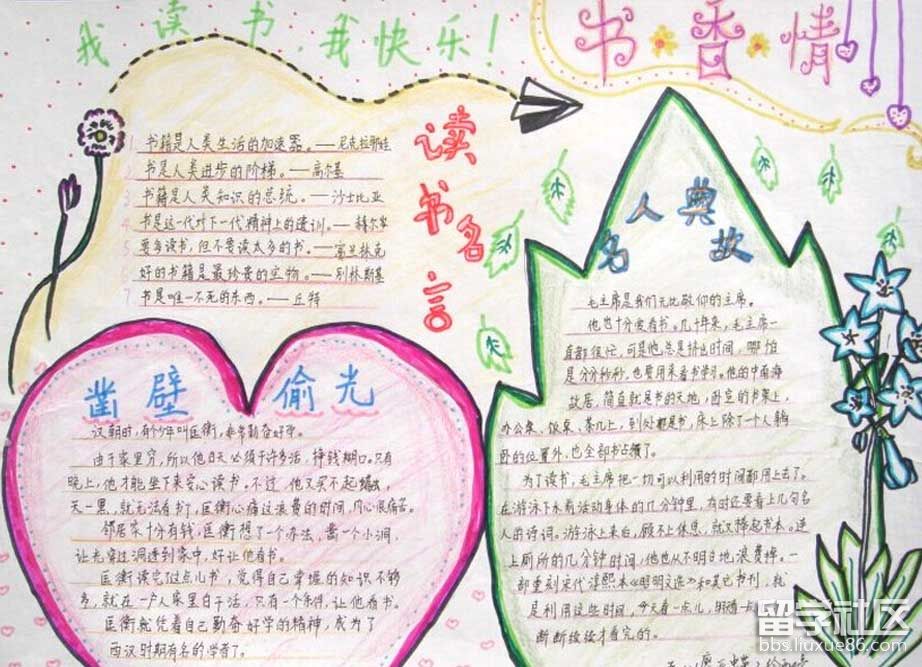 我读书,我快乐!
书香情
读书名言
1 书籍是人类生活的加速器。——尼克拉耶娃
2 书是人类进步的阶梯。——高尔基
3 书籍是人类知识的总统。——沙士比亚
4 书是这一代对下一代精神上的遗训。——赫尔岑
5 要多读书,但不要读太多的书。——富兰林克
6 好的书籍是最珍贵的实物。——别林斯基
7 书是唯一不死的东西。——丘特
凿壁偷光
汉朝时,有个少年叫匡衡,非常勤奋好学。
由于家里穷,所以他白天必须干许多活,挣钱糊口。只有
晚上,他才能坐下来安心读书。不过,他又买不起蜡烛,
天一黑,就无法看书了,匡衡心痛这浪费的时间,内心很痛苦。
邻居家十分有钱,匡衡想了一个办法,凿一个小洞,
让光穿过洞透到家中,好让他看书。
匡衡读完这点儿书,觉得自己掌握的知识不够
多,就在一户人家里白干活,只有一个条件,让他看书。
匡衡就凭着自己勤奋好学的精神,成为了
西汉时期有名的学者了。
名人典故
毛主席是我们无比敬仰的主席。
他也十分爱看书。几十年来,毛主席一
直都很忙,可是他总是挤出时间,哪怕
是分分秒秒,也要用来看书学习。他的中南海
故居,简直就是书的天地,卧室的书架上,
办公桌、饭桌、茶几上,到处都是书,床上除了一个人躺
卧的位置外,也全都书占领了。
为了读书,毛主席把一切可以利用的时间都用上去了。
在游泳下水前活动身体的几分钟里,有时还要看上几句名
人的诗词。游泳上来后,顾不上休息,就又捧起书本。连
上厕所的几分钟时间,他也从不明白地浪费掉。一
部重刻宋代淳熙本《昭明文选》和其它书刊,就
是利用这些时间,今天看一点儿,明看一点
断断续续才看完的。
留学社区
bbs.liuxue86.com